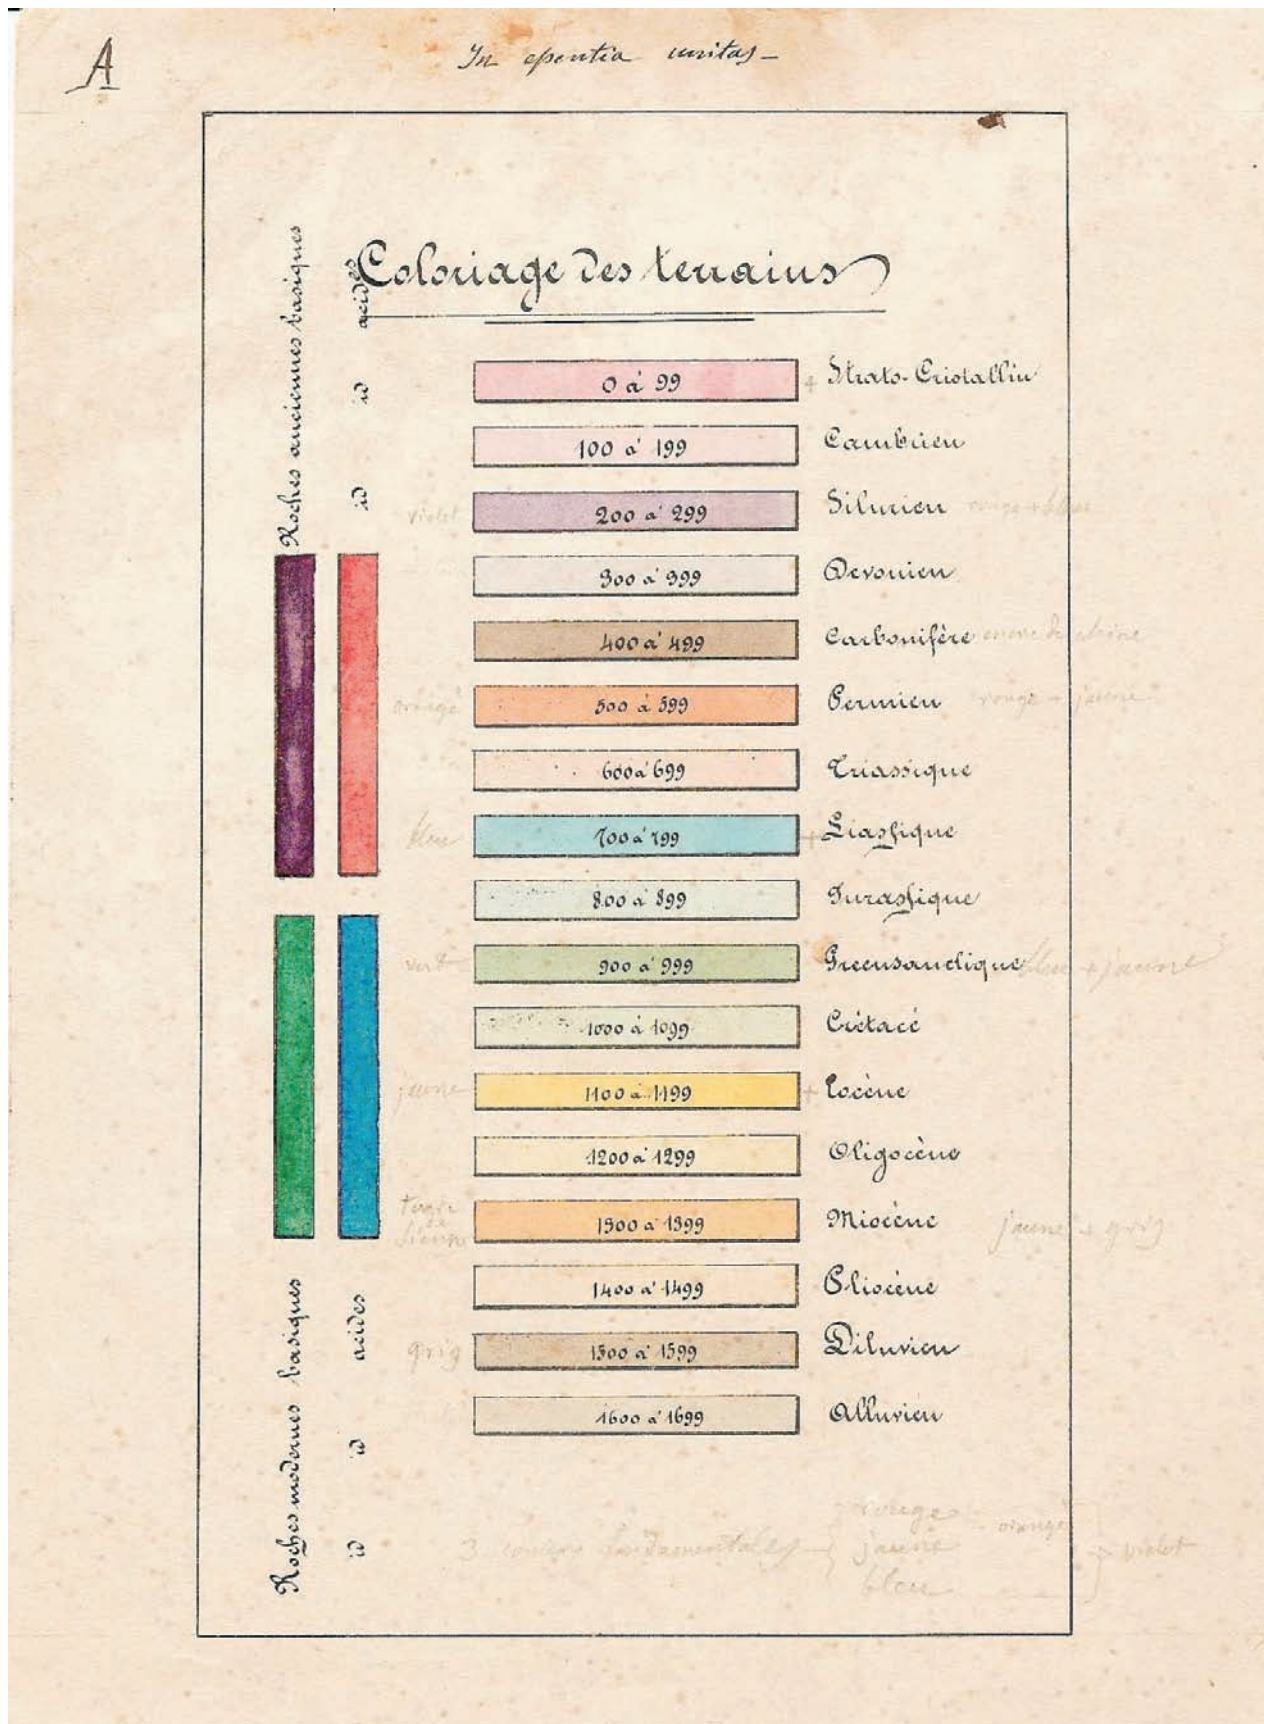 A
In essentia unitas –
Coloriage des terrains
Roches anciennes basiques
id id acides
0 à 99 + Strato-Cristallin
100 à 199 Cambrien
violet 200 à 299 Silurien rouge + bleu
300 à 399 Devonien
400 à 499 Carbonifère encre de chine
orangé 500 à 599 Permien rouge + jaune
600 à 699 Triassique
bleu 700 à 799 + Liassique
800 à 899 Jurassique
vert 900 à 999 Greensandique bleu + jaune
1000 à 1099 Crétacé
jaune 1100 à 1199 + Eocène
1200 à 1299 Oligocène
terre de Sienne 1300 à 1399 Miocène jaune + gris
1400 à 1499 Pliocène
gris 1500 à 1599 Diluvien
1600 à 1699 Alluvien
Roches modernes basiques
id id acides
3 fondamentales
rouge
jaune
bleu
orangé
violet